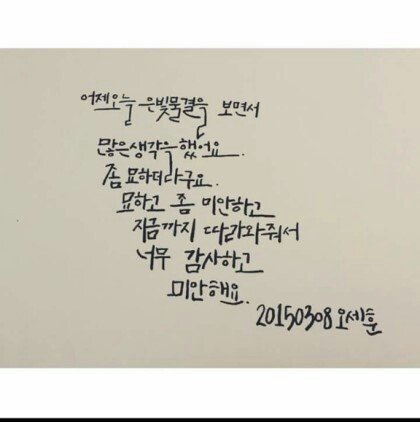 어제오늘 은빛물결을 보면서
많은생각을 했어요.
좀 묘하더라구요.
묘하고 좀 미안하고
지금까지 따라와줘서
너무 감사하고
미안해요.
20150308 오세훈